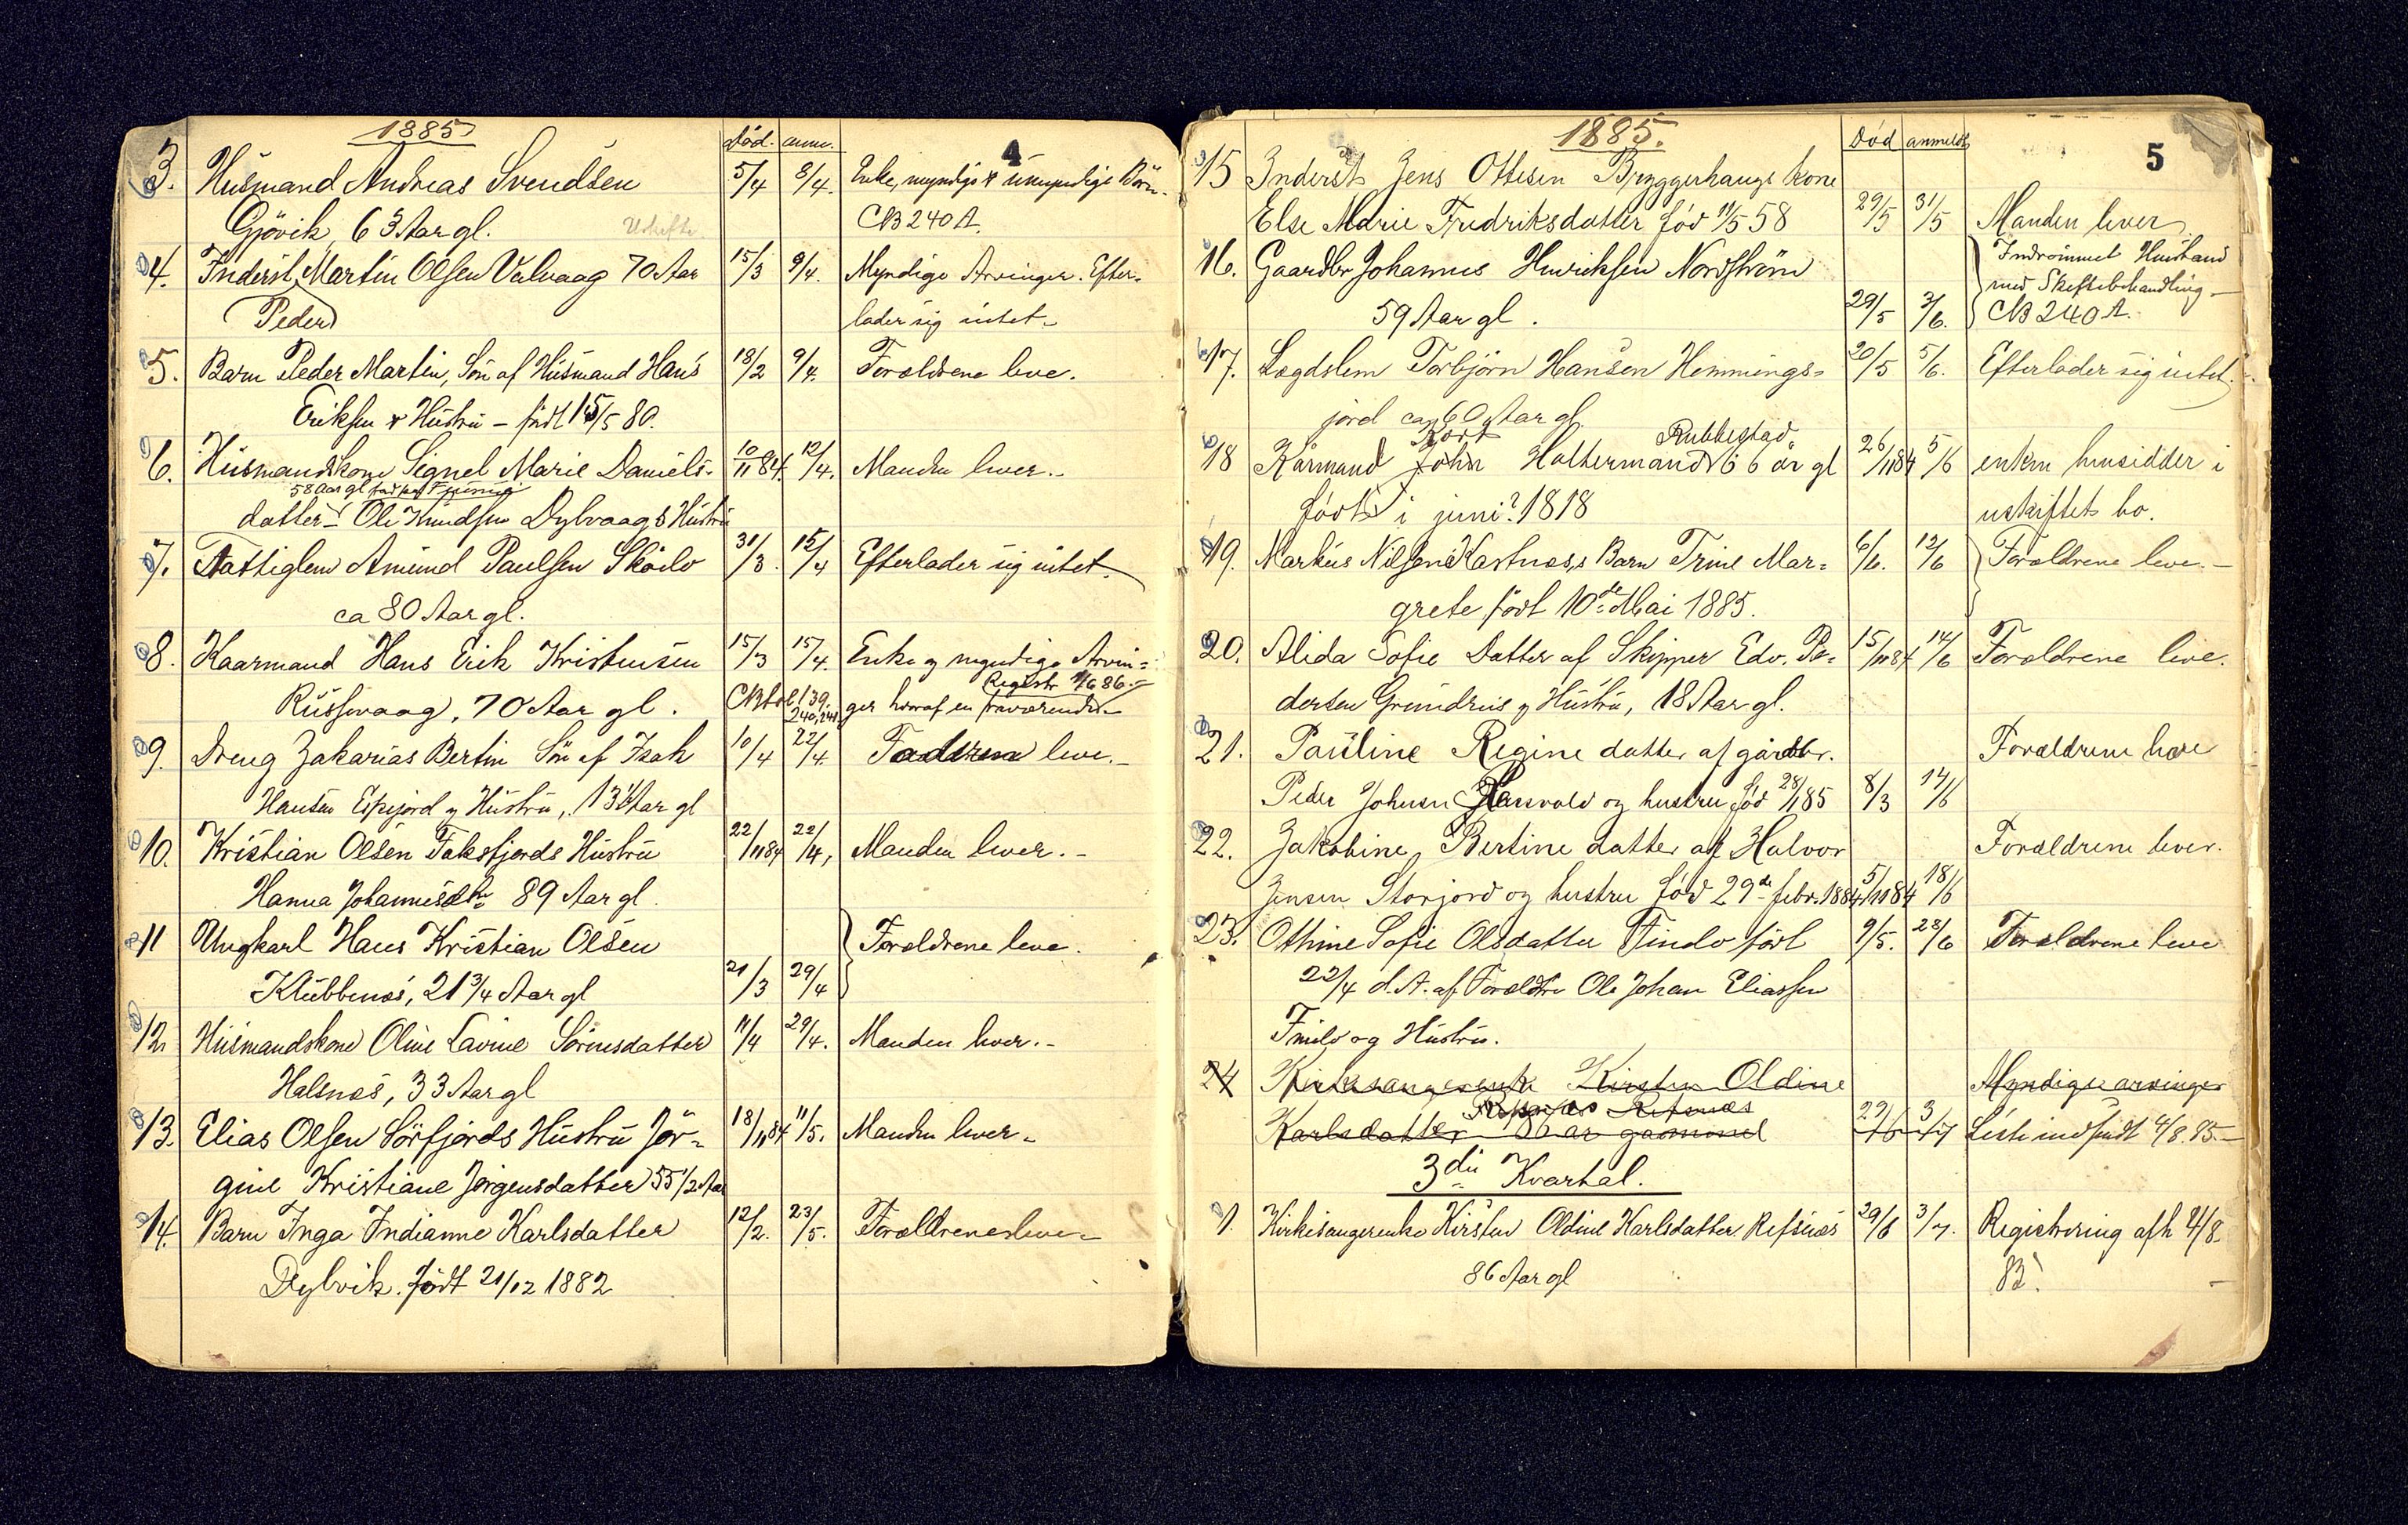 1885
Död. anm.
4
3. Husmand Andreas Svendsen 5/4 8/4. Enke, myndige & umyndige Börn.
Gjövik, 63 Aar gl. Uskifte CB 240 A.
4. Inderst, Martin Olsen Valvaag 70 Aar 15/3 9/4. Myndige Arvinger. Efter-
Peder lader sig intet.
5. Barn Peder Martin, Sön af Husmand Hans 18/2 9/4. Forældrene leve.
Eriksen & Hustru – födt 15/5 80.
6. Husmandskone Signel Marie Daniels- 10/11 84. 12/4. Manden lever.
58 Aar gl
datter Ole Knudsen Dylvaags Hustru
7. Fattiglem Amund Paulsen Skåilo 31/3. 15/4 Efterlader sig intet.
ca 80 Aar gl.
8. Kaarmand Hans Erik Kristensen 15/3 15/4. Enke og myndige Arvin-
Registr 1/6 86.
Russevaag, 70 Aar gl. CB fol 139. 240, 241 ger hvoraf en fraværende
9. Dreng Zakarias Bertin Sön af Isak 10/4 22/4. Faderen leve.
Hansen Espejord og Hustru, 13 Aar gl
10. Kristian Olsen Toksfjords Hustru 22/11 84 22/4, Manden lever.
Hanna Johannesdtr 89 Aar gl.
11 Ungkarl Hans Kristian Olsen Forældrene leve.
Klubbenes, 21 3/4 Aar gl 21/3 29/4
12. Husmandskone Oline Lavine Sörensdatter 11/4 29/4. Manden lever.
Halsnæs, 33 Aar gl
13. Elias Olsen Sörfjords Hustru Jör- 18/11 84 11/5. Manden lever
gine Kristiane Jörgensdatter 55 1/2 Aar
14. Barn Inga Indianne Karlsdatter 12/2. 23/5. Forældrene leve
Dylvik. Födt 21/12 1882
1885.
Död anmeldt
5
15 Inderst Jens Ottesen Bryggerhaugs kone
Else Marie Fredriksdatter föd 11/5 58 29/5 31/5 Manden lever
16. Gaardbr Johannes Henriksen Nordström Indrömmet Henstand
med Skiftebehandling
59 Aar gl. 29/5 3/6. CB 240 A.
17. Lægdslem Torbjörn Hansen Hemmings- 20/5 5/6. Efterlader sig intet.
jord ca 60 Aar gl.
Kort Rubbestad.
18 Kårmand John Haltermand 66 år gl 26/11 84 5/6 enken hensidder i
født i juni? 1818 uskiftet bo.
19. Markus Nilsen Karknes,s Barn Trine Mar- 6/6. 12/6 Forældrene leve.
grete födt 10de Mai 1885.
20. Alida Sofie Datter af Skipper Edv. Pe- 15/11 84 14/6 Forældrene leve.
dersen Grundnes og Hustru, 18 Aar gl.
21. Pauline Regine datter af gårdbr. Forældrene leve
Peder Johnsen Harsvold og hustru föd 28/1 85 8/3 14/6
22. Jakobine Bertine datter af Halvor Forældrene lever.
Jensen Storjord og hustru föd 29de febr. 1884 5/11 84 18/6
23. Othine Sofie Olsdatter Finlo födt 9/5. 28/6 Forældrene leve
22/4 d. A. af Forældre Ole Johan Eliassen
Finlo og Hustru.
24 Kirkesangerenke Kirsten Oldine Myndige arvinger
Refsnæs
Karlsdatter 86 år gammel 29/6 3/7 Liste indsendt 4/8. 85.
3die Kvartal.
1. Kirkesangerenke Kirsten Oldine Karlsdatter Refsnæs 29/6 3/7. Registrering afh 4/8.
86 Aar gl 85.